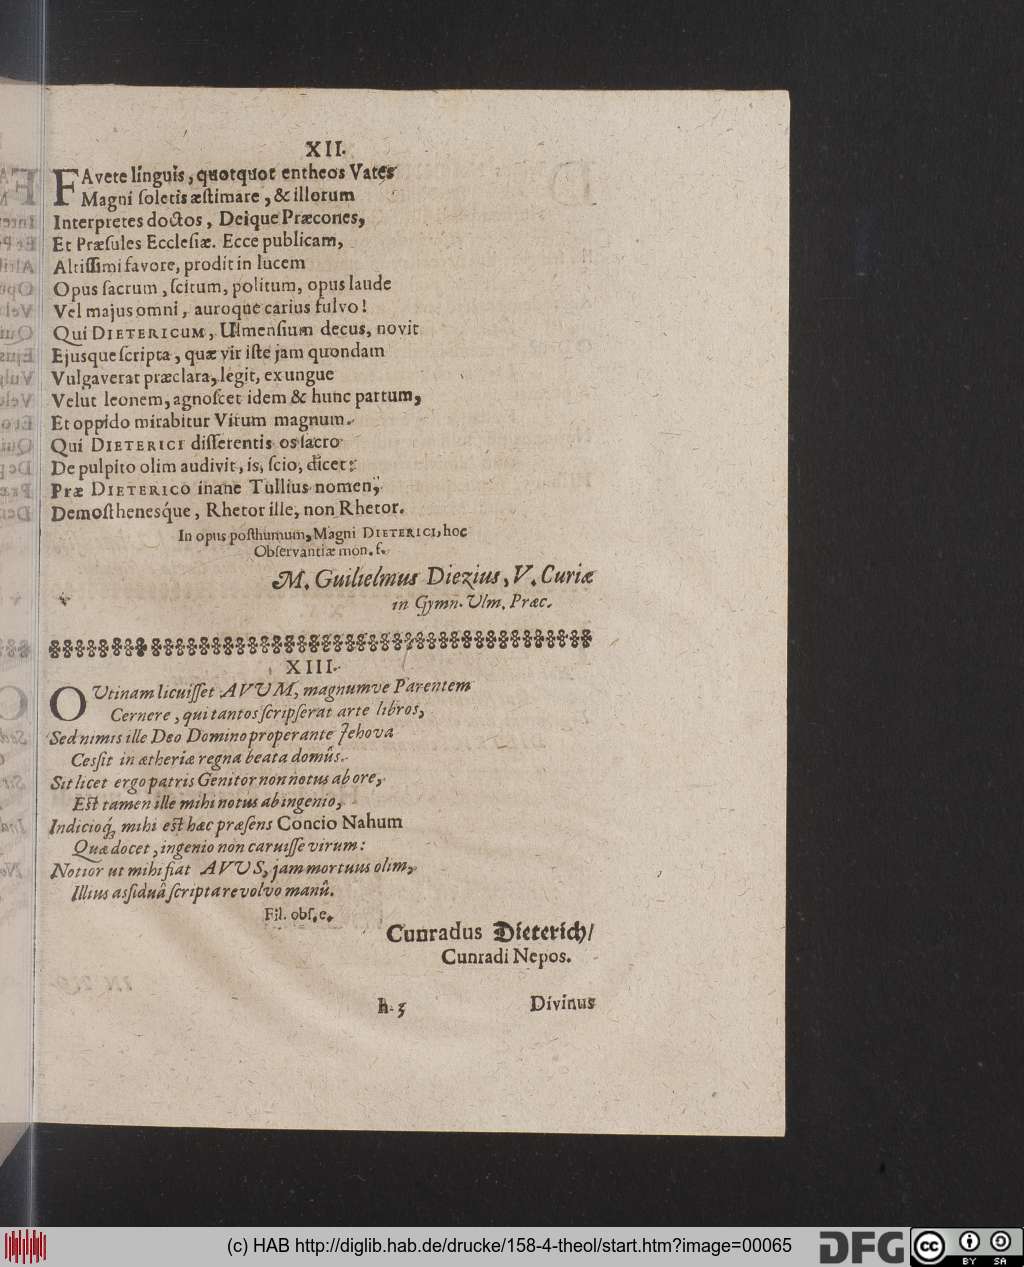 XII.
FAvete linguis, quotquot entheos Vates
Magni ſoletis æſtimare, & illorum
Interpretes doctos, Deique Præcones,
Et Præſules Eccleſiæ. Ecce publicam,
Altiſſimi favore, prodit in lucem
Opus ſacrum, ſcitum, politum, opus laude
Vel majus omni, auroque carius fulvo!
Qui DIETERICUM, Ulmenſium decus, novit
Ejusque ſcripta, quæ vir iſte jam quondam
Vulgaverat præclara, legit, ex ungue
Velut leonem, agnoſcet idem & hunc partum,
Et oppido mirabitur Virum magnum.
Qui DIETERICI diſſerentis os ſacro
De pulpito olim audivit, is, ſcio, dicet:
Præ DIETERICO inane Tullius nomen,
Demoſthenesq́ue, Rhetor ille, non Rhetor.
In opus poſthumum, Magni DIETERICI, hoc
Obſervantiæ mon. f.
M. Guilielmus Diezius, V. Curiæ
in Gymn. Ulm. Præc.
XIII.
OUtinam licuiſſet AVUM, magnumve Parentem
Cernere, qui tantos ſcripſerat arte libros,
Sed nimis ille Deo Domino properante Jehova
Ceſſit in ætheriæ regna beata domûs.
Sit licet ergo patris Genitor non notus ab ore,
Eſt tamen ille mihi notus ab ingenio,
Indicioq́; mihi eſt hæc præſens Concio Nahum
Quæ docet, ingenio non caruiſſe virum:
Notior ut mihi fiat AVUS, jam mortuus olim,
Illius aſſiduâ ſcripta revolvo manû.
Fil. obſ. c.
Cunradus Dieterich/
Cunradi Nepos.
h 3 Divinus
(c) HAB http://diglib.hab.de/drucke/158-4-theol/start.htm?image=00065
DFG
cc BY SA